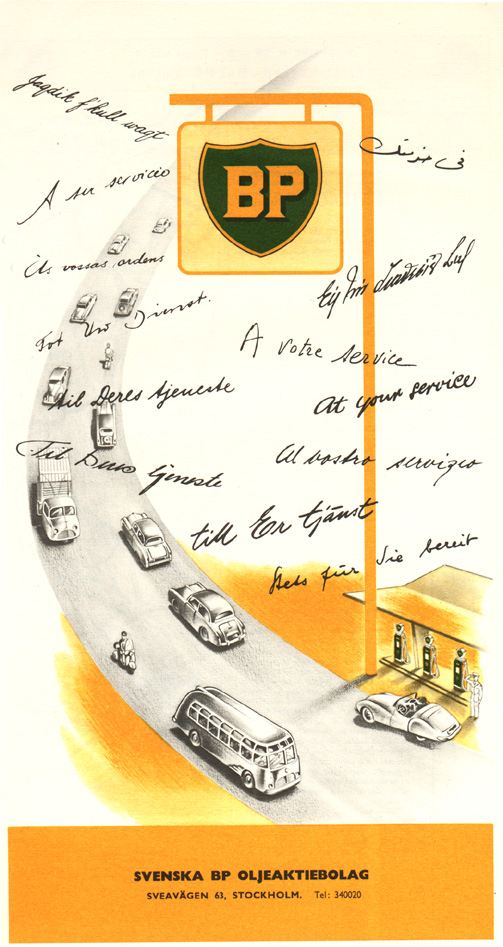 Jaqdik f'kull waqt
في خدمتك
BP
A su servicio
Às vossas ordens
Tot Uw Dienst.
A votre service
til Deres tjeneste
At your service
Til Deres tjeneste
Al vostro servizio
till Er tjänst
Stets für Sie bereit
SVENSKA BP OLJEAKTIEBOLAG
SVEAVÄGEN 63, STOCKHOLM. Tel: 340020